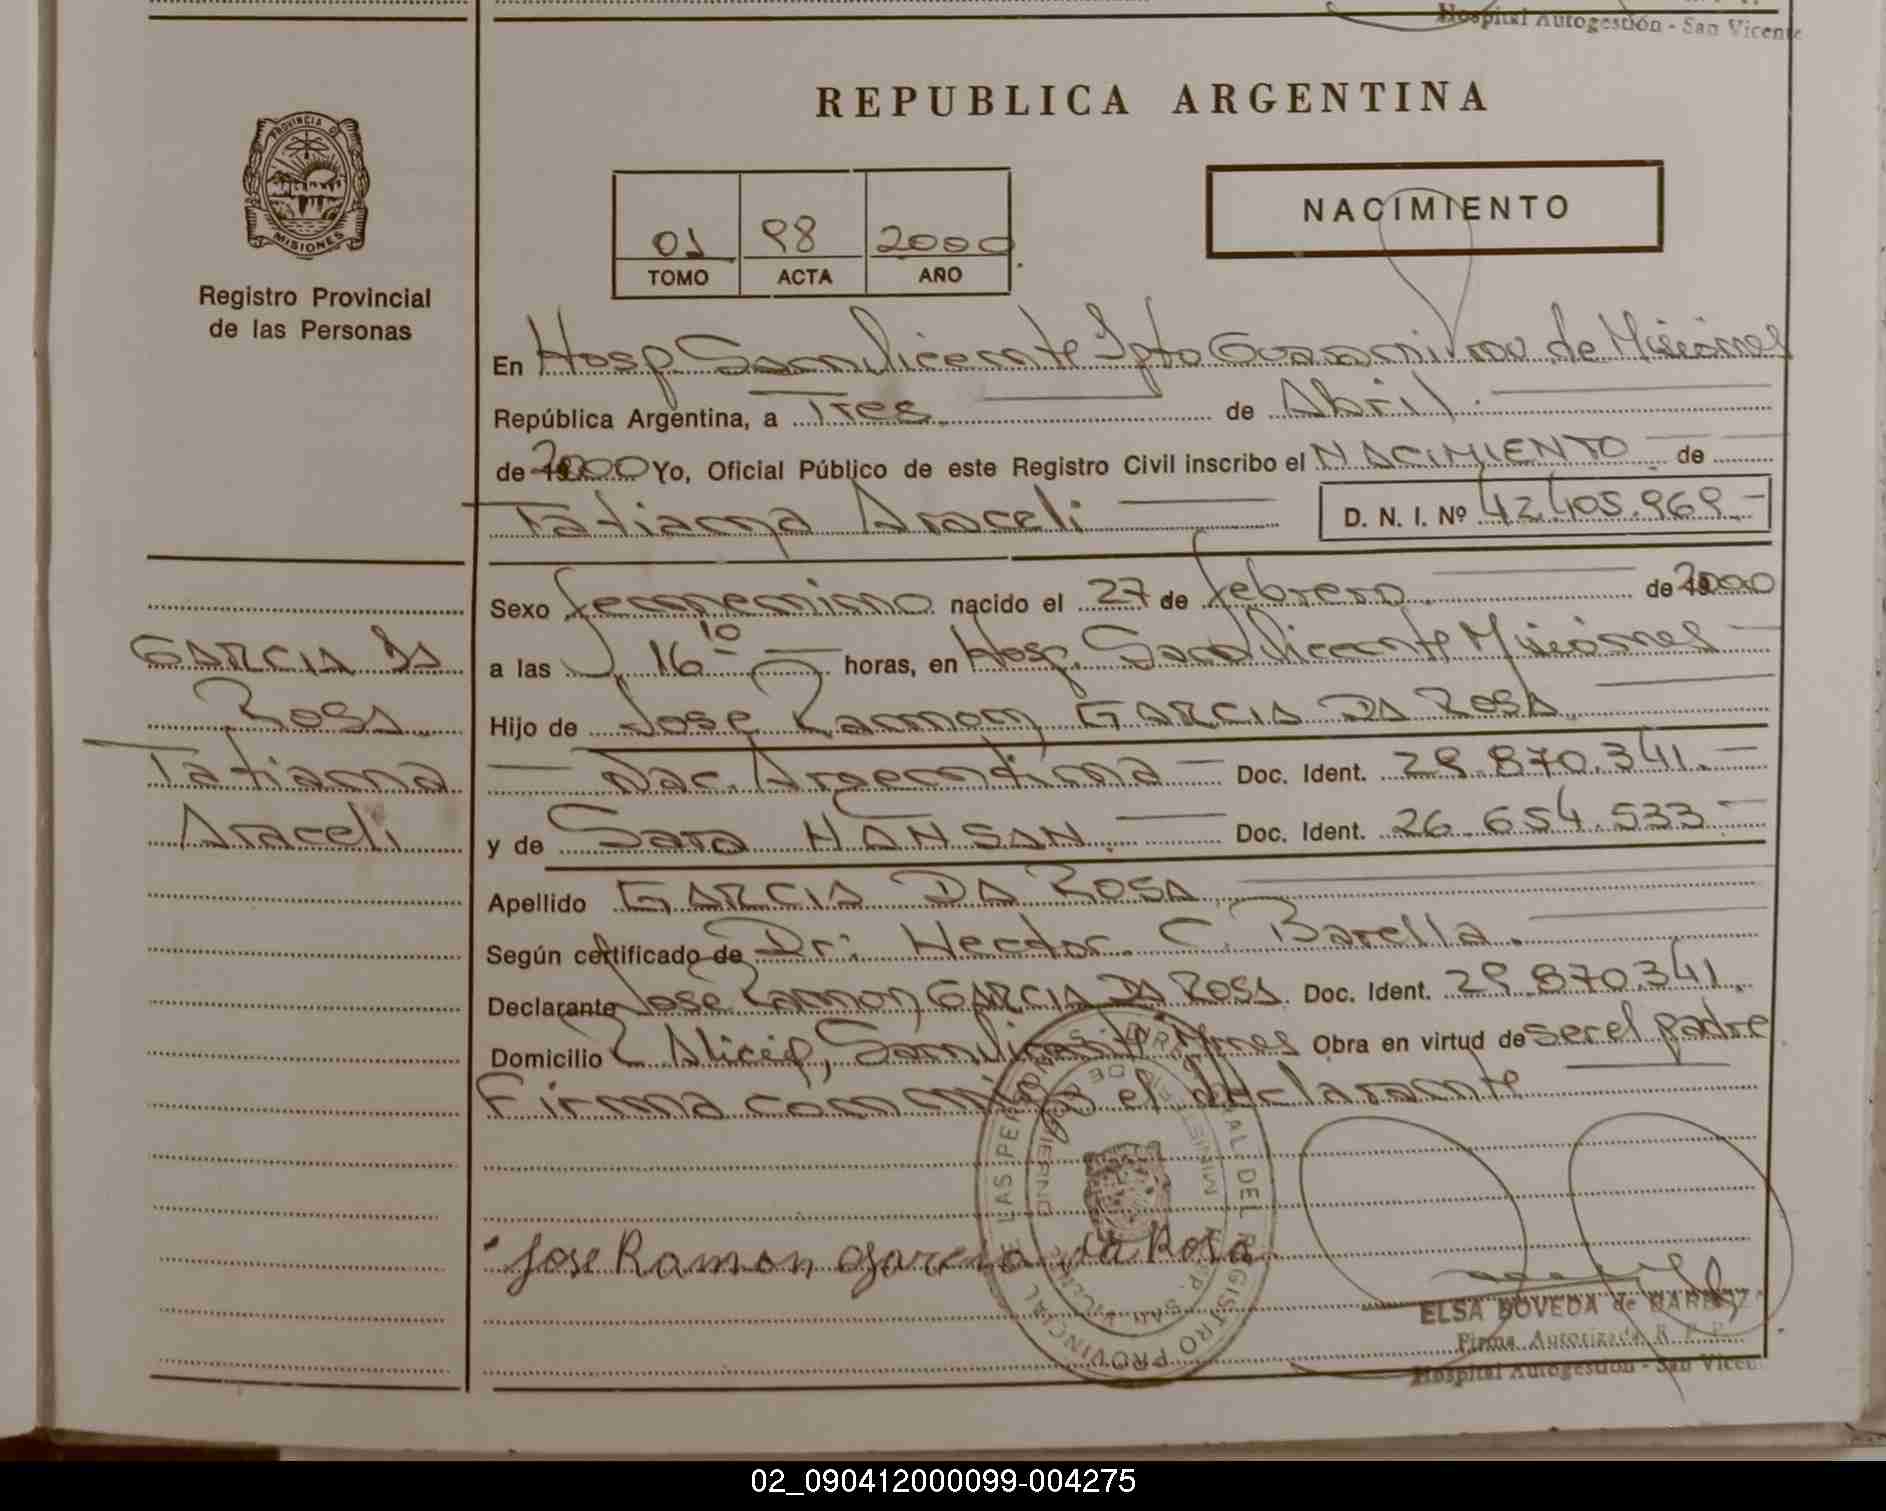 Hospital Autogestión - San Vicente
REPUBLICA ARGENTINA
PROVINCIA D
MISIONES
Registro Provincial
de las Personas
01 98 2000
TOMO ACTA AÑO
NACIMIENTO
En Hosp San Vicente Dpto Guarani Prov de Misiones
República Argentina, a Tres de Abril.
de 2000 Yo, Oficial Público de este Registro Civil inscribo el NACIMIENTO de
Tatiana Araceli D. N. I. Nº 42.405.969.-
Sexo femenino nacido el 27 de febrero de 2000
GARCIA DA
a las 16 10 horas, en Hosp. San Vicente Misiones
ROSA
Hijo de Jose Ramon GARCIA DA ROSA
Tatiana
Nac. Argentina Doc. Ident. 29.870.341.
Araceli
y de Sara HANSAN. Doc. Ident. 26.654.533
Apellido GARCIA DA ROSA
Según certificado de Dr: Hector C. Barella.
Declarante Jose Ramon GARCIA DA ROSA Doc. Ident. 29.870.341.
Domicilio San Vicente Mnes Obra en virtud de ser el padre
Firma conmigo el declarante
Jose Ramon Garcia da Rosa
ELSA BOVEDA de BARBOZA
Firma Autorizada R. P. P.
Hospital Autogestión - San Vicen
02_090412000099-004275